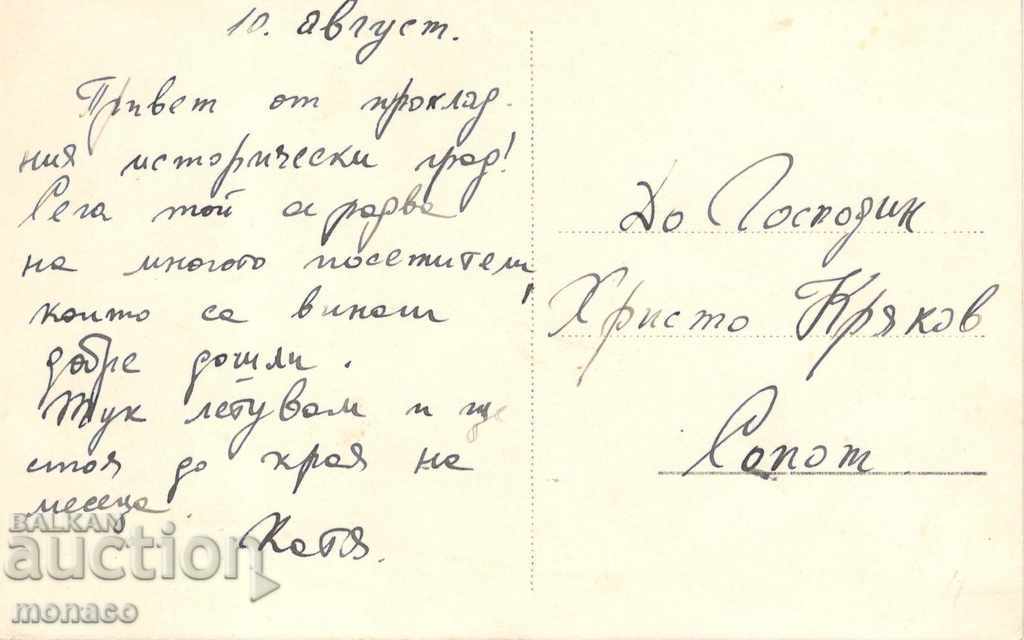 10. август.
Привет от проклад-
ния исторически град!
Сега той се радва
на многото посетители,
които са винаги
добре дошли.
Тук летувам и ще
стоя до края на
месеца.
Катя.
До Господин
Христо Кряков
Сопот
BALKAN
auction
monaco